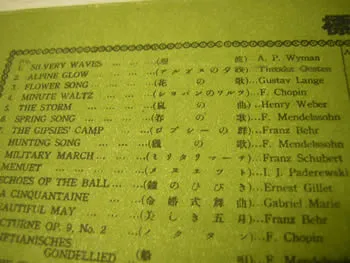 SILVERY WAVES (銀 波) A. P. Wyman
2. ALPINE GLOW (アルプスの夕映) Theodor Oesten
3. FLOWER SONG (花 の 歌) Gustav Lange
4. MINUTE WALTZ (ショパンのワルツ) F. Chopin
5. THE STORM (嵐 の 曲) Henry Weber
6. SPRING SONG (春 の 歌) F. Mendelssohn
7. THE GIPSIES' CAMP (ロプシーの群) Franz Behr
HUNTING SONG (猟 の 歌) F. Mendelssohn
MILITARY MARCH (ミリタリマーチ) Franz Schubert
MENUET (メヌエット) I. J. Paderewski
ECHOES OF THE BALL (鐘のひびき) Ernest Gillet
LA CINQUANTAINE (金婚式舞曲) Gabriel Marie
BEAUTIFUL MAY (美しき五月) Franz Behr
NOCTURNE OP. 9, No. 2 (ノクタン) F. Chopin
NETIANISCHES
GONDELLIED (船 唄) F. Mendel